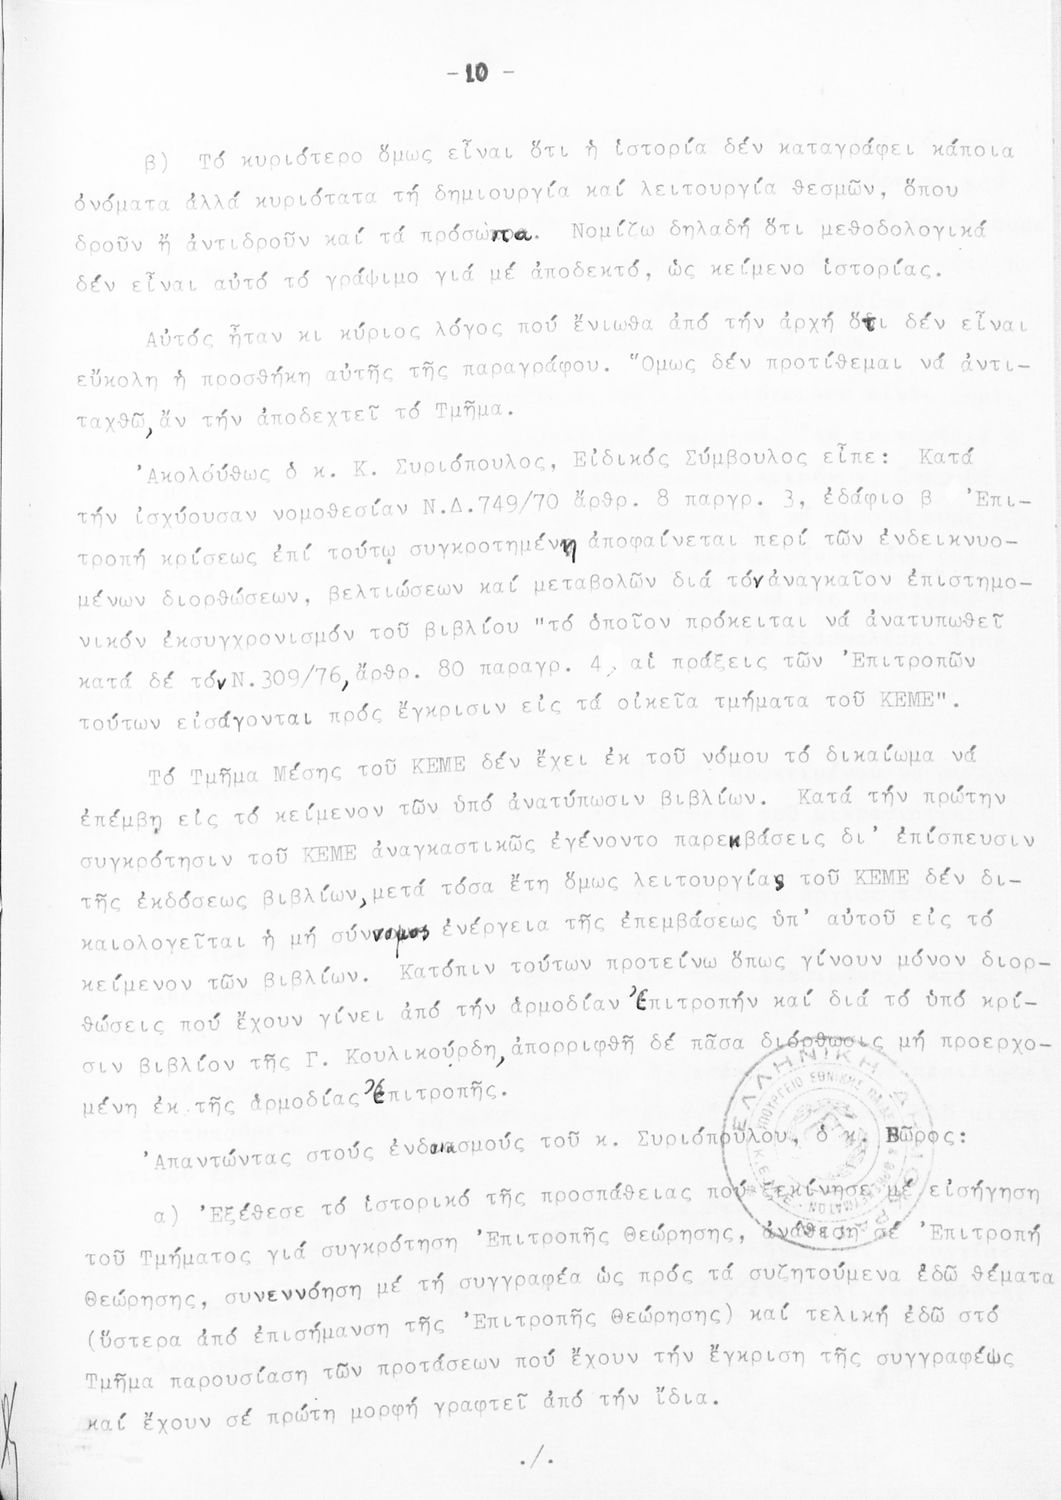 - 10 -
β) Τό κυριότερο ὅμως εἶναι ὅτι ἡ ἱστορία δέν καταγράφει κάποια
ὀνόματα ἀλλά κυριότατα τή δημιουργία καί λειτουργία θεσμῶν, ὅπου
δροῦν ἤ ἀντιδροῦν καί τά πρόσωπα. Νομίζω δηλαδή ὅτι μεθοδολογικά
δέν εἶναι αὐτό τό γράψιμο γιά μέ ἀποδεκτό, ὡς κείμενο ἱστορίας.
Αὐτός ἦταν κι κύριος λόγος πού ἔνιωθα ἀπό τήν ἀρχή ὅτι δέν εἶναι
εὔκολη ἡ προσθήκη αὐτῆς τῆς παραγράφου. Ὅμως δέν προτίθεμαι νά ἀντι-
ταχθῶ, ἄν τήν ἀποδεχτεῖ τό Τμῆμα.
Ἀκολούθως ὁ κ. Κ. Συριόπουλος, Εἰδικός Σύμβουλος εἶπε: Κατά
τήν ἰσχύουσαν νομοθεσίαν Ν.Δ.749/70 ἄρθρ. 8 παργρ. 3, ἐδάφιο β Ἐπι-
τροπή κρίσεως ἐπί τούτῳ συγκροτημένη ἀποφαίνεται περί τῶν ἐνδεικνυο-
μένων διορθώσεων, βελτιώσεων καί μεταβολῶν διά τόν ἀναγκαῖον ἐπιστημο-
νικόν ἐκσυγχρονισμόν τοῦ βιβλίου "τό ὁποῖον πρόκειται νά ἀνατυπωθεῖ
κατά δέ τόν Ν.309/76, ἄρθρ. 80 παραγρ. 4, αἱ πράξεις τῶν Ἐπιτροπῶν
τούτων εἰσάγονται πρός ἔγκρισιν εἰς τά οἰκεῖα τμήματα τοῦ ΚΕΜΕ".
Τό Τμῆμα Μέσης τοῦ ΚΕΜΕ δέν ἔχει ἐκ τοῦ νόμου τό δικαίωμα νά
ἐπέμβῃ εἰς τό κείμενον τῶν ὑπό ἀνατύπωσιν βιβλίων. Κατά τήν πρώτην
συγκρότησιν τοῦ ΚΕΜΕ ἀναγκαστικῶς ἐγένοντο παρεκβάσεις δι' ἐπίσπευσιν
τῆς ἐκδόσεως βιβλίων, μετά τόσα ἔτη ὅμως λειτουργίας τοῦ ΚΕΜΕ δέν δι-
καιολογεῖται ἡ μή σύννομος ἐνέργεια τῆς ἐπεμβάσεως ὑπ' αὐτοῦ εἰς τό
κείμενον τῶν βιβλίων. Κατόπιν τούτων προτείνω ὅπως γίνουν μόνον διορ-
θώσεις πού ἔχουν γίνει ἀπό τήν ἁρμοδίαν Ἐπιτροπήν καί διά τό ὑπό κρί-
σιν βιβλίον τῆς Γ. Κουλικούρδη, ἀπορριφθῆ δέ πᾶσα διόρθωσις μή προερχο-
μένη ἐκ τῆς ἁρμοδίας Ἐπιτροπῆς.
Ἀπαντώντας στούς ἐνδοιασμούς τοῦ κ. Συριόπουλου, ὁ κ. Βῶρος:
α) Ἐξέθεσε τό ἱστορικό τῆς προσπάθειας πού ξεκίνησε μέ εἰσήγηση
τοῦ Τμήματος γιά συγκρότηση Ἐπιτροπῆς θεώρησης, ἀνάθεση σέ Ἐπιτροπή
θεώρησης, συνεννόηση μέ τή συγγραφέα ὡς πρός τά συζητούμενα ἐδῶ θέματα
(ὕστερα ἀπό ἐπισήμανση τῆς Ἐπιτροπῆς θεώρησης) καί τελική ἐδῶ στό
Τμῆμα παρουσίαση τῶν προτάσεων πού ἔχουν τήν ἔγκριση τῆς συγγραφέως
καί ἔχουν σέ πρώτη μορφή γραφτεῖ ἀπό τήν ἴδια.
./.